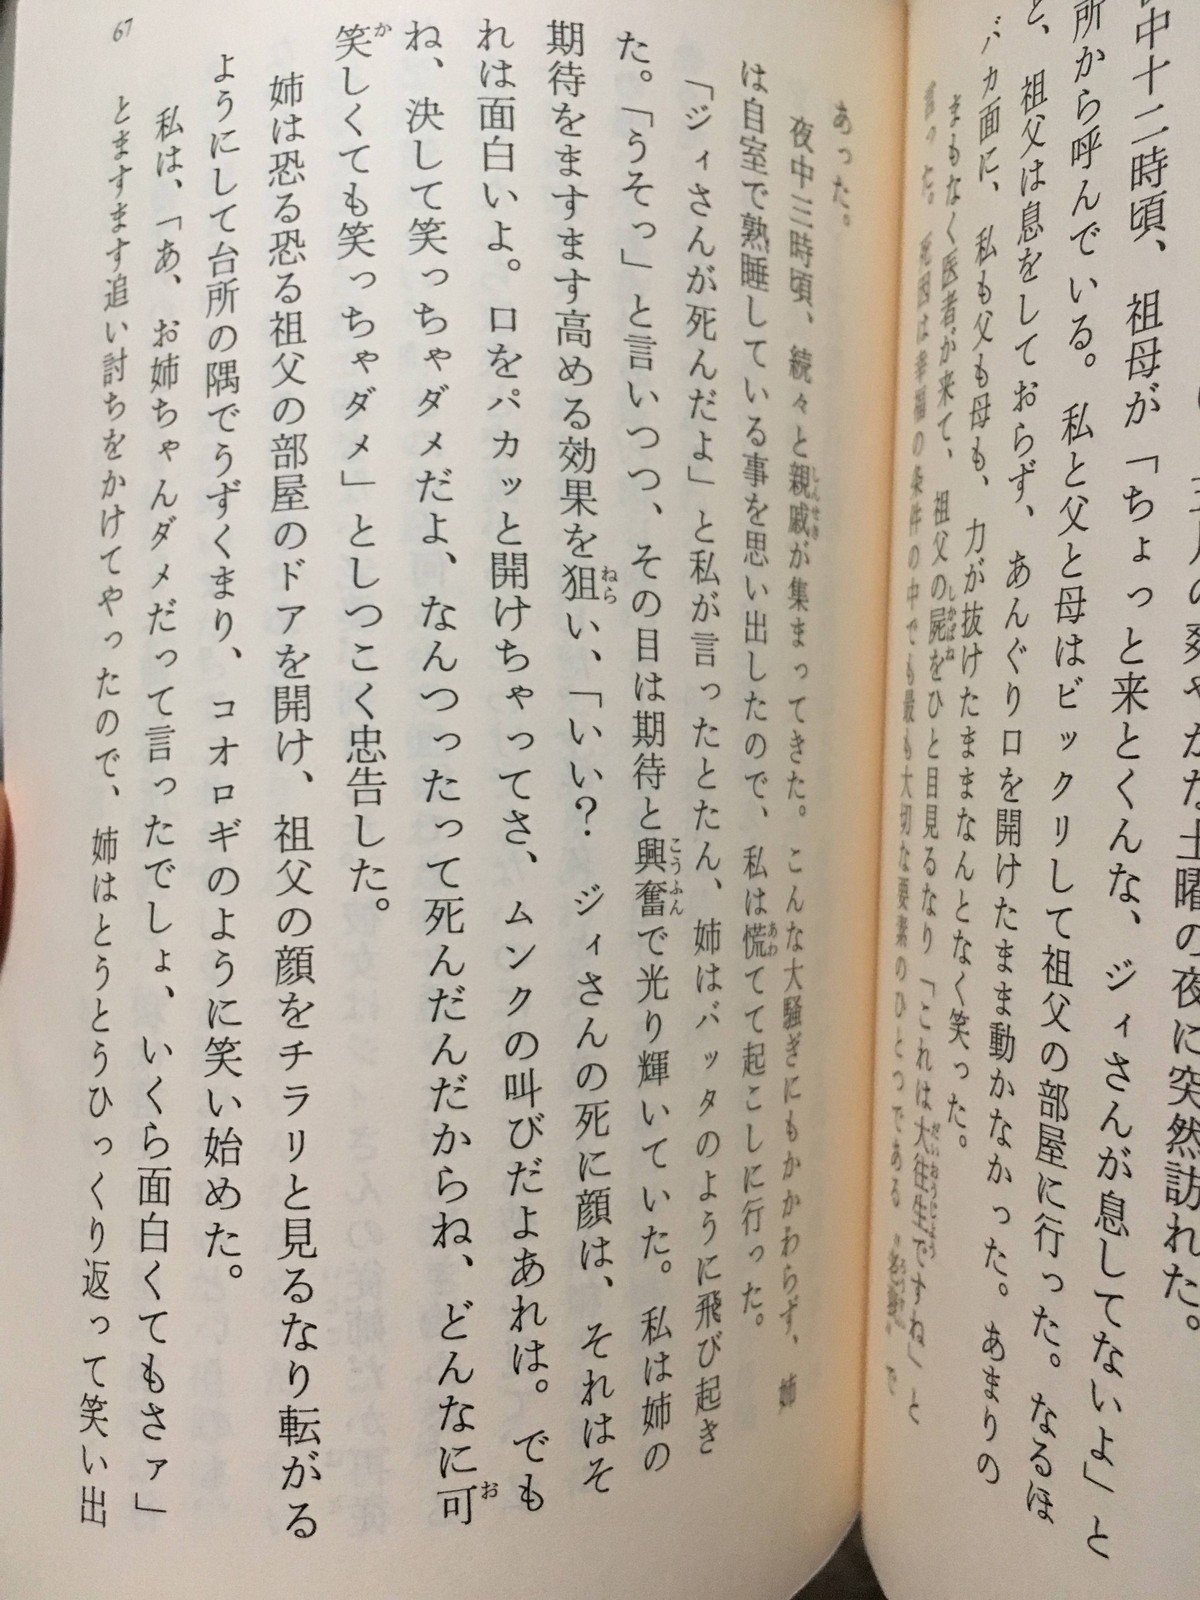 爽やかな土曜の夜に突然訪れた。
中十二時頃、祖母が「ちょっと来とくんな、ジィさんが息してないよ」と
所から呼んでいる。私と父と母はビックリして祖父の部屋に行った。なるほ
と、祖父は息をしておらず、あんぐり口を開けたまま動かなかった。あまりの
バカ面に、私も父も母も、力が抜けたままなんとなく笑った。
まもなく医者が来て、祖父の屍をひと目見るなり「これは大往生ですね」と
言った。死因は幸福の条件の中でも最も大切な要素のひとつである〝老衰〟で
あった。
夜中三時頃、続々と親戚が集まってきた。こんな大騒ぎにもかかわらず、姉
は自室で熟睡している事を思い出したので、私は慌てて起こしに行った。
「ジィさんが死んだよ」と私が言ったとたん、姉はバッタのように飛び起き
た。「うそっ」と言いつつ、その目は期待と興奮で光り輝いていた。私は姉の
期待をますます高める効果を狙い、「いい？　ジィさんの死に顔は、それはそ
れは面白いよ。口をパカッと開けちゃってさ、ムンクの叫びだよあれは。でも
ね、決して笑っちゃダメだよ、なんつったって死んだんだからね、どんなに可
笑しくても笑っちゃダメ」としつこく忠告した。
姉は恐る恐る祖父の部屋のドアを開け、祖父の顔をチラリと見るなり転がる
ようにして台所の隅でうずくまり、コオロギのように笑い始めた。
私は、「あ、お姉ちゃんダメだって言ったでしょ、いくら面白くてもさァ」
とますます追い討ちをかけてやったので、姉はとうとうひっくり返って笑い出
67